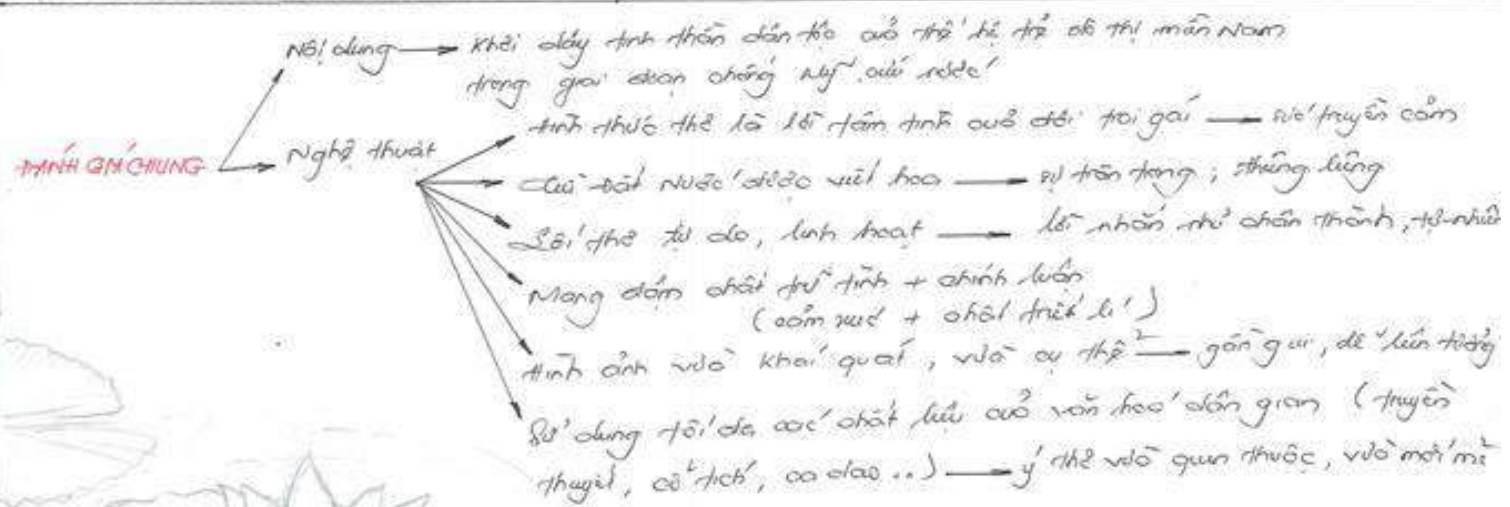 ĐÁNH GIÁ CHUNG
Nội dung → khơi dậy tinh thần dân tộc của thế hệ trẻ đô thị miền Nam
trong giai đoạn chống Mỹ cứu nước
Nghệ thuật
Hình thức thơ là lời tâm tình của đôi trai gái → sức truyền cảm
Chữ Đất Nước được viết hoa → sự trân trọng, thiêng liêng
Lối thơ tự do, linh hoạt → lời nhắn nhủ chân thành, tự nhiên
Mang đậm chất trữ tình + chính luận
(cảm xúc + chất triết lí)
Hình ảnh vừa khái quát, vừa cụ thể → gần gũi, dễ liên tưởng
Sử dụng tối đa các chất liệu của văn hoá dân gian (truyền
thuyết, cổ tích, ca dao ..) → ý thơ vừa quen thuộc, vừa mới mẻ